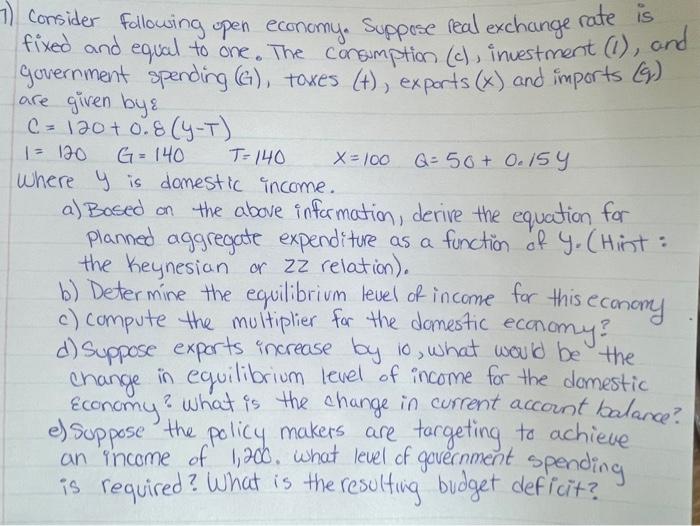 1) Consider following open economy. Suppose real exchange rate is
fixed and equal to one. The consumption (c), investment (I), and
government spending (G), taxes (t), exports (x) and imports (q)
are given by:
C = 120 + 0.8 (y-T)
I = 120 G = 140 T = 140 X = 100 Q = 50 + 0.15y
Where y is domestic income.
a) Based on the above information, derive the equation for
planned aggregate expenditure as a function of y. (Hint:
the Keynesian or ZZ relation).
b) Determine the equilibrium level of income for this economy
c) compute the multiplier for the domestic economy?
d) Suppose exports increase by 10, what would be the
change in equilibrium level of income for the domestic
Economy? what is the change in current account balance?
e) Suppose the policy makers are targeting to achieve
an income of 1,200. what level of government spending
is required? What is the resulting budget deficit?